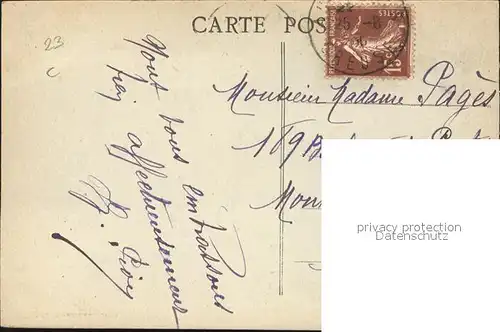 CARTE POS
23
Nous vous embrassons
affectueusement
Monsieur Madame Pagès
169
Mon
POSTES
15
25 -8
privacy protection
Datenschutz